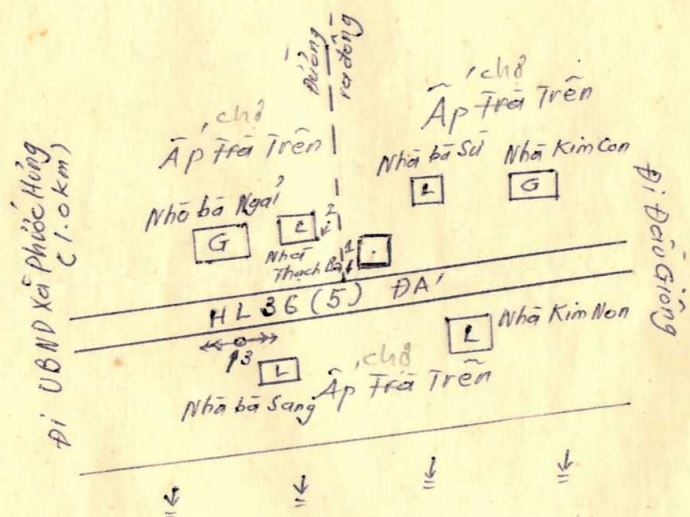 Đường
ra đồng
chợ
Ấp Trà Trên
chợ
Ấp Trà Trên
Nhà bà Sứ
Nhà Kim Con
Nhà bà Ngải
L
G
G
L
2
Nhà
Thạch Ba
1
Đi UBND Xã Phước Hưng
(1.0km)
Đi Đầu Giồng
HL 36 (5) ĐÁ
L
Nhà Kim Non
13
L
chợ
Ấp Trà Trên
Nhà bà Sang